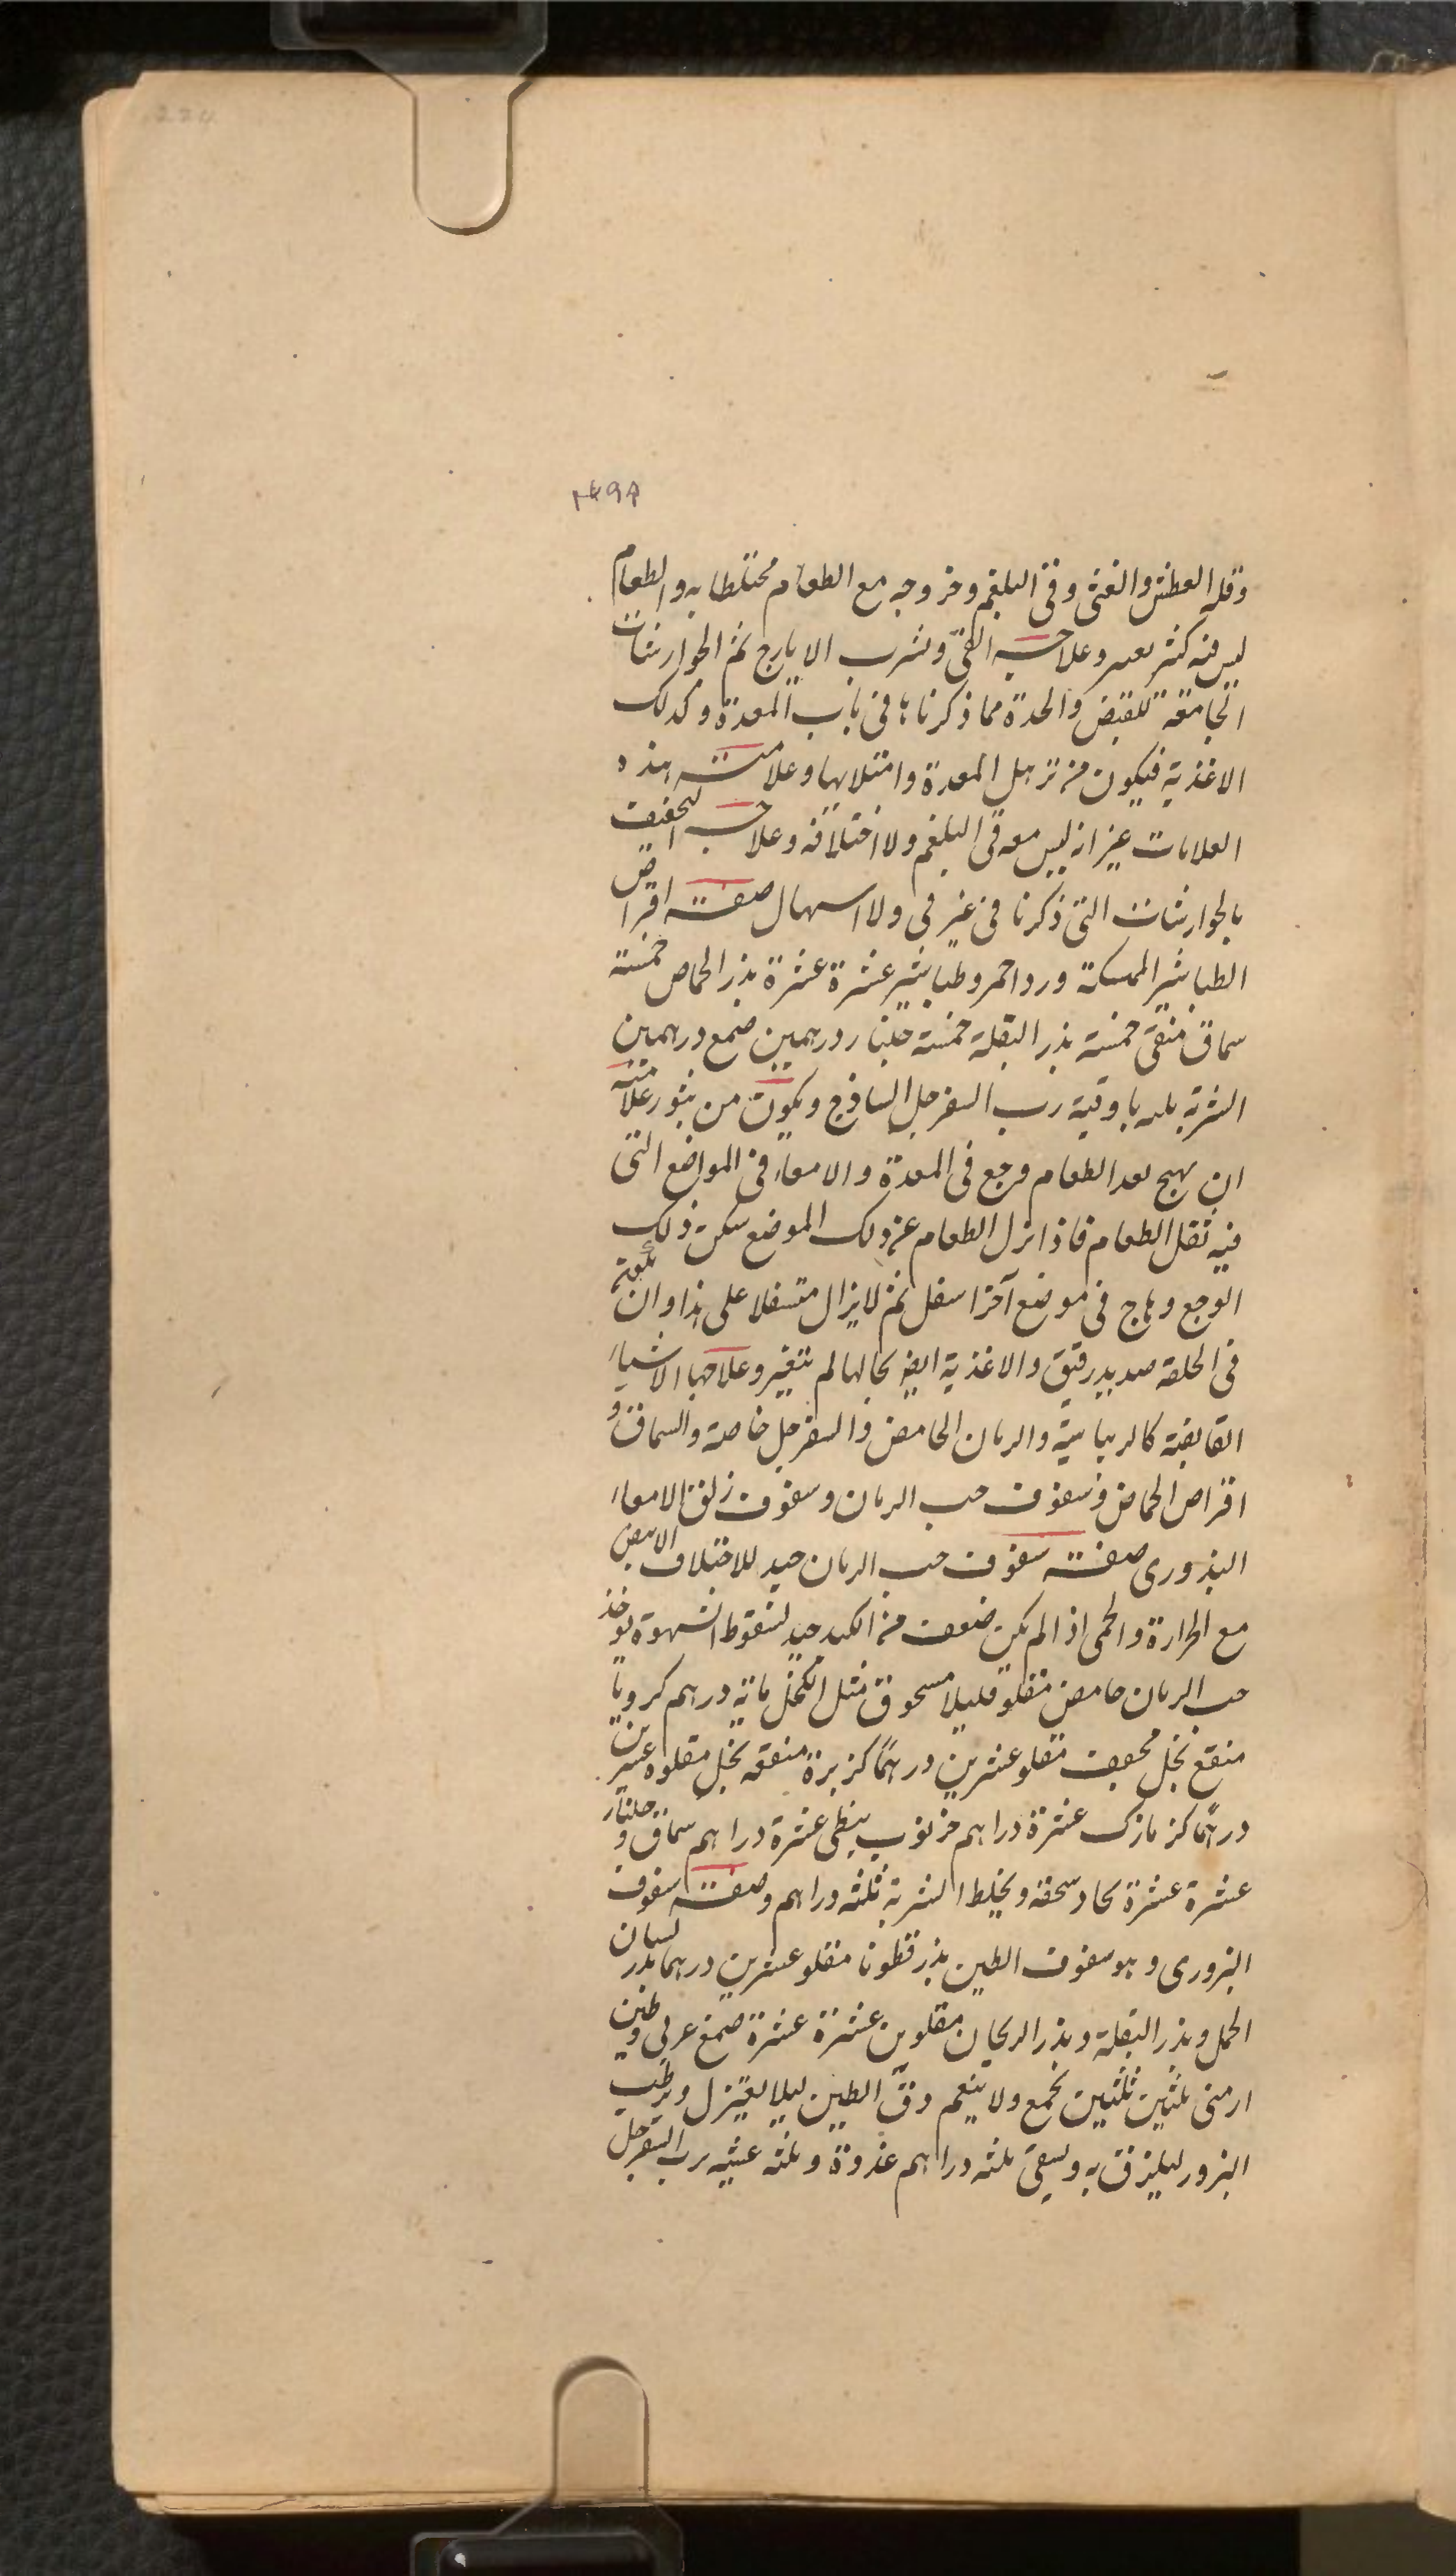 وقلة العطش والغثى وقى البلغم وخروجه مع الطعام مختلطا به والطعام
ليس فيه كثير تغير وعلاجه القى وشرب الايارج ثم الجوارشنات
الجامعة للقبض والحدة مما ذكرناها فى باب المعدة وكذلك
الاغذية فيكون من ترهل المعدة وامتلائها وعلامته هذه
العلامات غير انه ليس معه قى البلغم ولا اختلافه وعلاجه التجفيف
بالجوارشنات التى ذكرنا فى غير قى ولا اسهال صفته اقراص
الطباشير الممسكة ورد احمر وطباشير عشرة عشرة بذر الحماض خمسة
سماق منقى خمسة بذر البقلة خمسة جلنار درهمين صمغ درهمين
الشربة ثلثة باوقية رب السفرجل الساذج ويكون من بثور علامته
ان يهيج بعد الطعام وجع فى المعدة والامعاء فى المواضع التى
فيه ثقل الطعام فاذا نزل الطعام عن ذلك الموضع سكن ذلك
الوجع وهاج فى موضع آخر اسفل ثم لا يزال متسفلا على هذا وان
فى الخلفة صديد رقيق والاغذية ايضا بحالها لم تتغير وعلاجها الاشياء
القابضة كالريباسية والرمان الحامض والسفرجل خاصة والسماق و
اقراص الحماض وسفوف حب الرمان وسفوف زلق الامعاء
البذورى صفته سفوف حب الرمان جيد للاختلاف الابيض
مع الحرارة والحمى اذا لم يكن ضعف من الكبد جيد لسقوط الشهوة يوخذ
حب الرمان حامض مقلو قليلا مسحوق مثل الكحل ماية درهم كرويا
منقع بخل مجفف مقلو عشرين درهما كزبرة منقعه بخل مقلوه عشرين
درهما كزمازك عشرة دراهم خرنوب نبطى عشرة دراهم سماق و جلنار
عشرة عشرة يجاد سحقه ويخلط الشربة ثلثه دراهم وصفته سفوف
البزورى وهو سفوف الطين بذر قطونا مقلو عشرين درهما بذر لسان
الحمل وبذر البقلة وبذر الريحان مقلوين عشرة عشرة صمغ عربى وطين
ارمنى ثلثين ثلثين يجمع ولا ينعم دق الطين ليلا يعتزل ويرطب
البزور ليلزق به ويسقى ثلثه دراهم غدوة وثلثه عشيه برب السفرجل